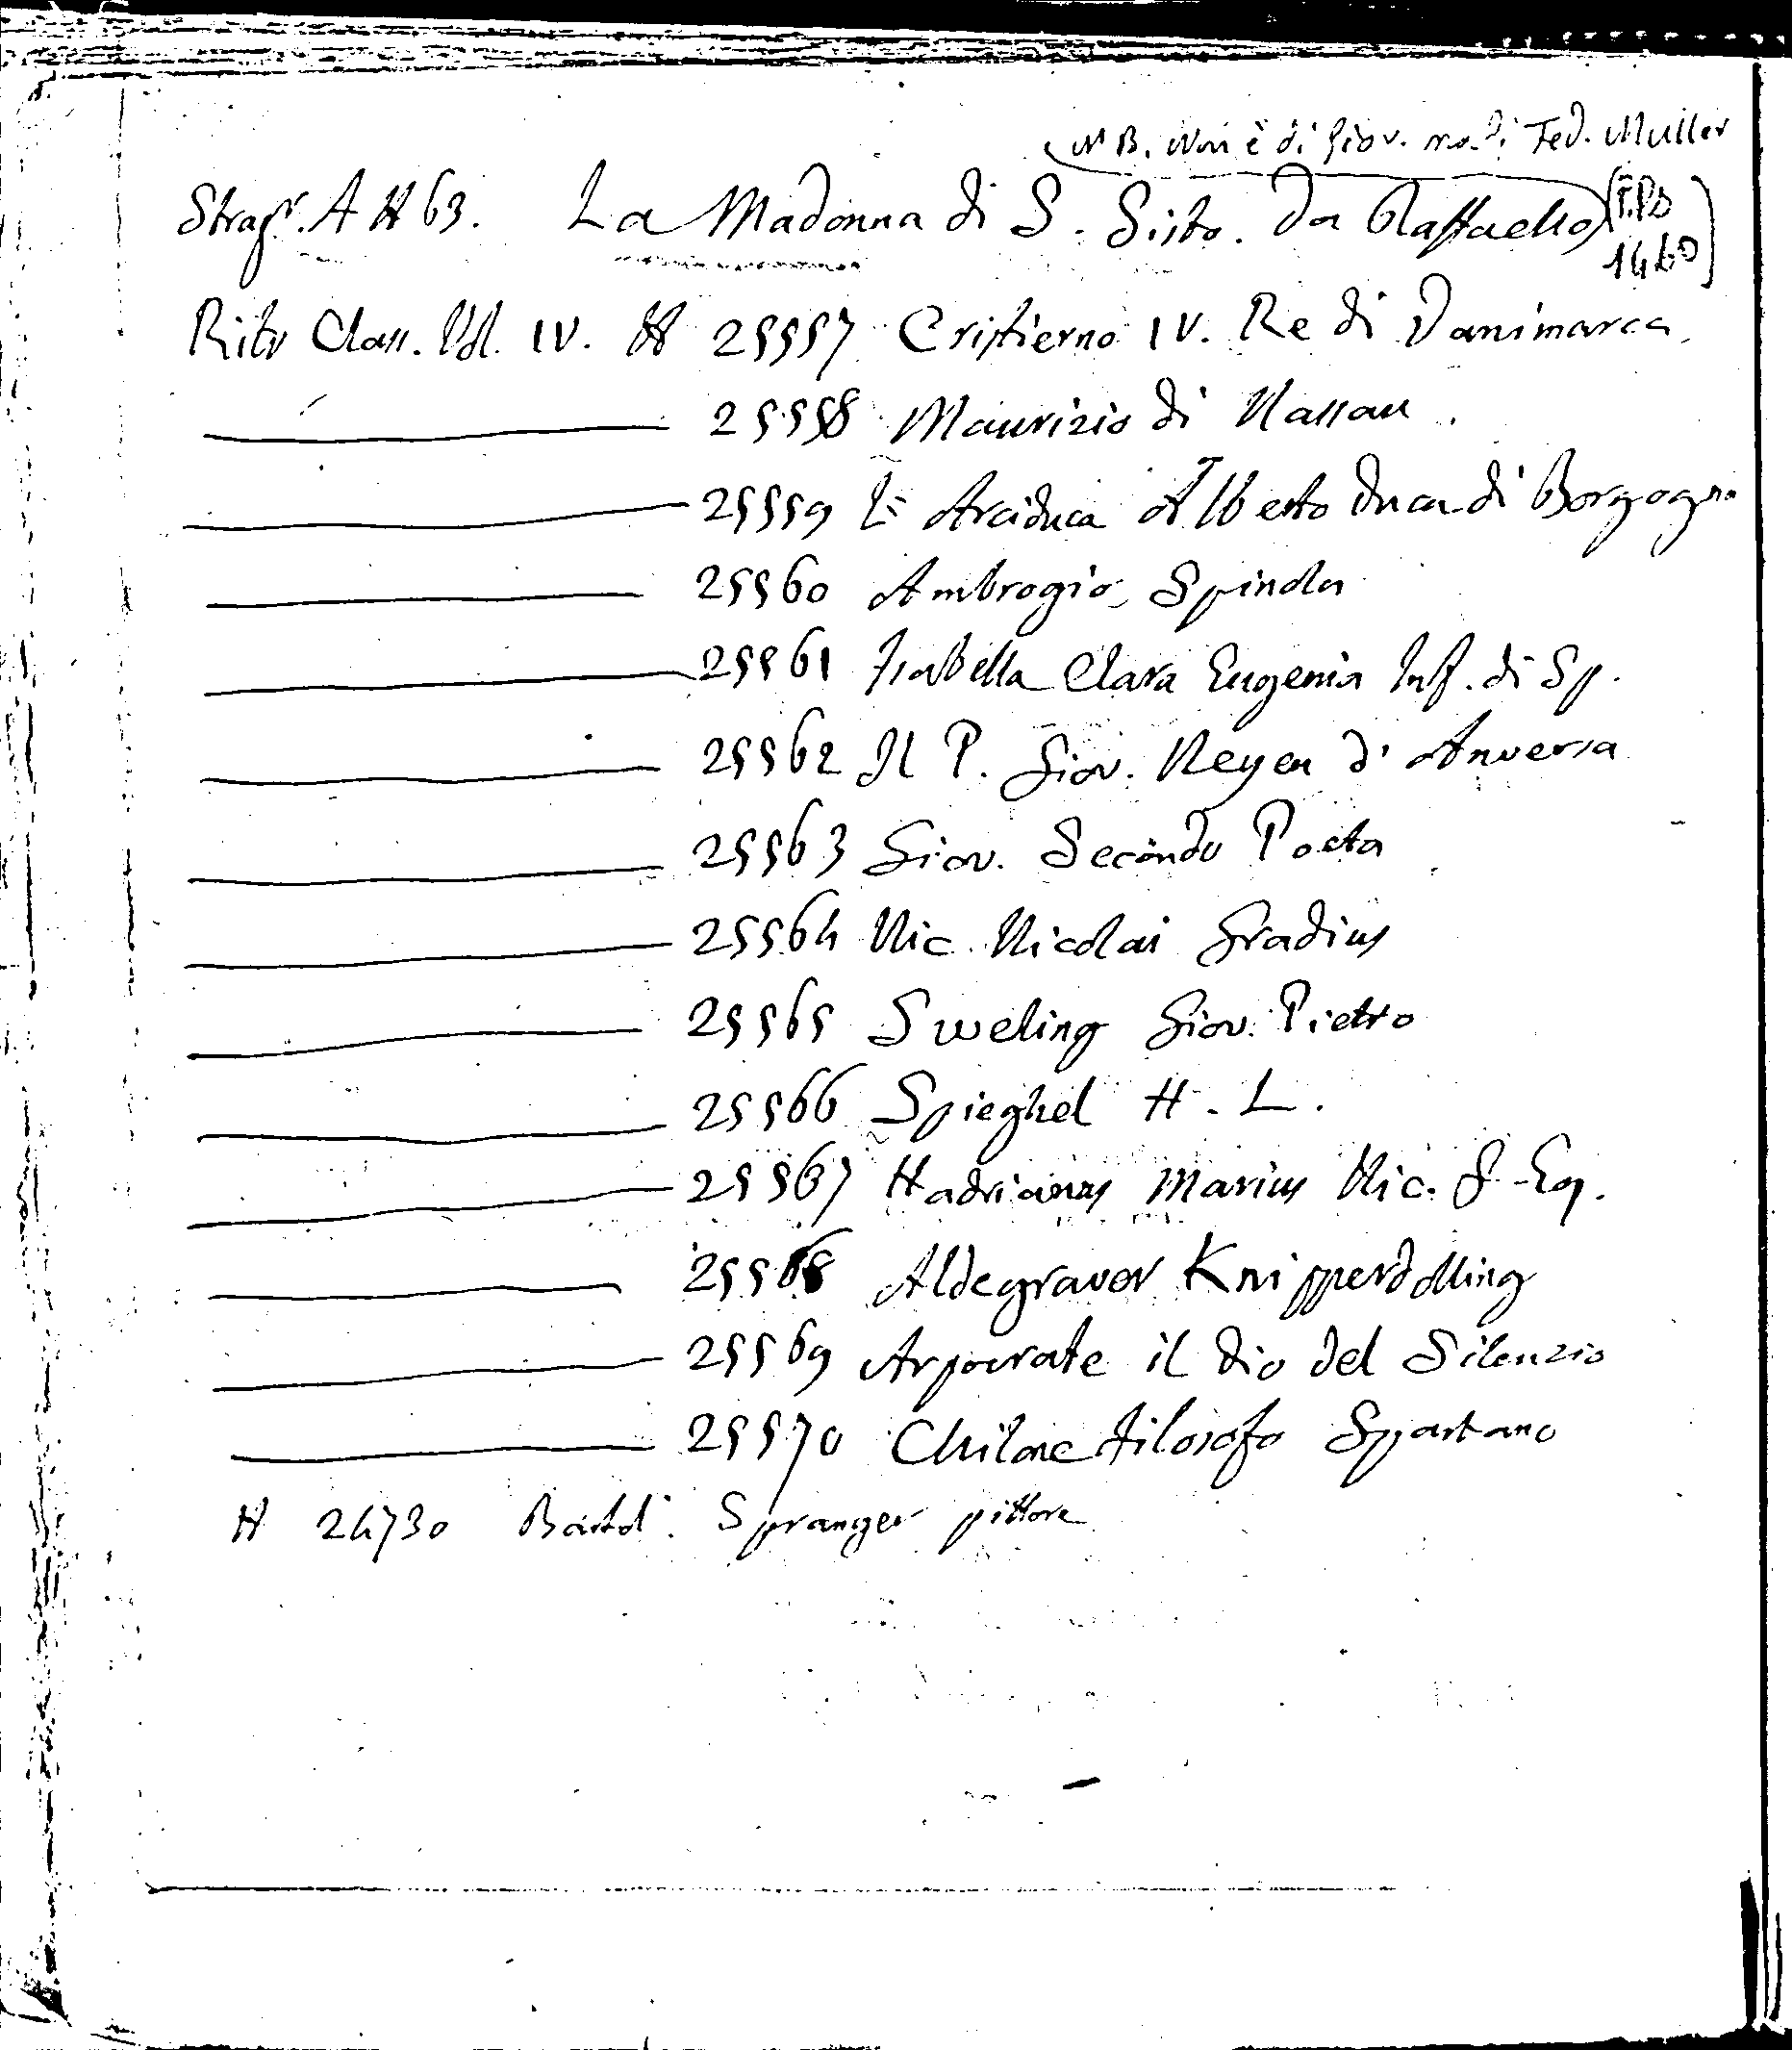 N B. Non è di Giov. ma di Fed. Muller
Strag. A N 63. La Madonna di S. Sisto. Da Raffaello (T.P.D
1460)
Ritr Class. Vol. IV. N 25557 Cristierno IV. Re di Danimarca.
25558 Maurizio di Nassau.
25559 L' Arciduca Alberto Duca di Borgogna
25560 Ambrogio Spinola
25561 Isabella Clara Eugenia Inf. di Sp.
25562 Il P. Giov. Neyen d' Anversa
25563 Giov. Secondo Poeta
25564 Nic. Nicolai Gradius
25565 Sweling Giov. Pietro
25566 Spieghel H. L.
25567 Hadrianus Marius Nic. F. Eq.
25568 Aldegraver Knipperdolling
25569 Arpocrate il Dio del Silenzio
25570 Chilone filosofo Spartano
N 24730 Bartol. Spranger pittore